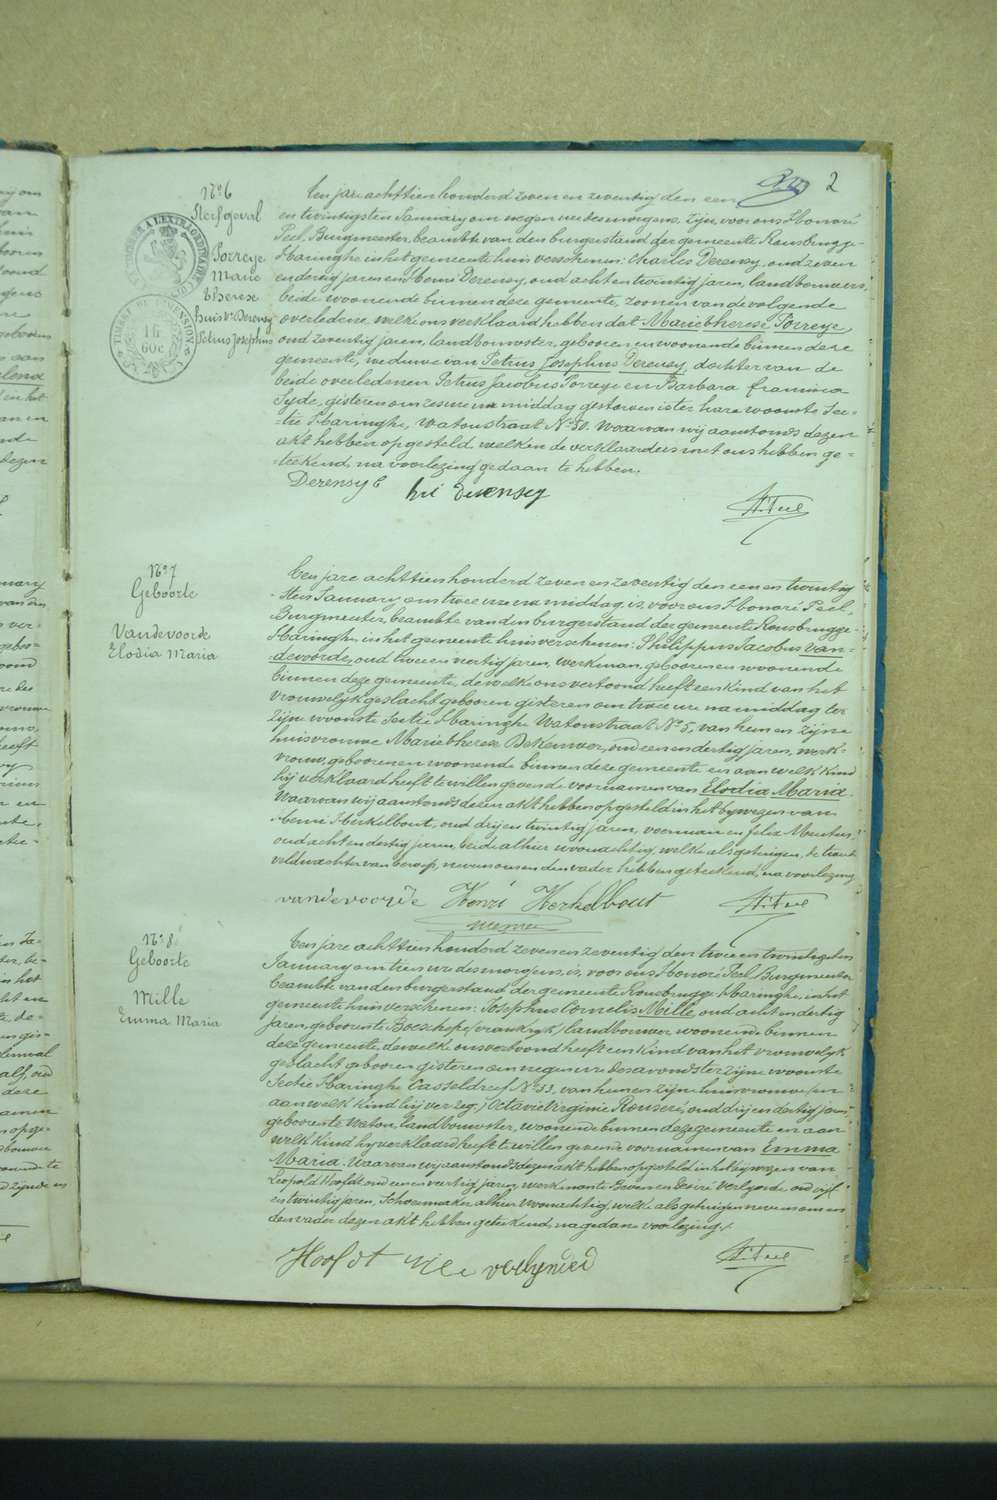 2
N° 6
Sterfgeval
Porreye
Marie
Therese
huisv. Derensy
Petrus Josephus
TIMBRE A L'EXTRAORDINAIRE
TIMBRE DE DIMENSION
16
60c
Ten jare achttien honderd zeven en zeventig den een
en twintigsten January om negen ure des morgens, zijn, voor ons Honoré
Peel, Burgmeester, beambte van den burgerstand der gemeente Rousbrugge-
Haringhe in het gemeente huis verschenen: Charles Derensy, oud zeven
en dertig jaren en Henri Derensy, oud acht en twintig jaren, landbouwers,
beide woonende binnen deze gemeente, zonen van de volgende
overledene, welke ons verklaard hebben dat Marie therese Porreye,
oud zeventig jaren, landbouwster, geboren en woonende binnen deze
gemeente, weduwe van Petrus Josephus Derensy, dochter van de
beide overledenen Petrus Jacobus Porreye en Barbara francisca
Syde, gisteren om zes ure na middag gestorven is ter hare woonste Sec-
-tie Haringhe, Watoustraat N° 50. Waarvan wij aanstonds dezen
akt hebben opgesteld, welken de verklaarders met ons hebben ge-
teekend, na voorlezing gedaan te hebben.
Derensy C hri derensy H. Peel
N° 7
Geboorte
Vandevoorde
Elodia Maria
Ten jare achttien honderd zeven en zeventig den een en twintig-
sten January om twee ure na middag, is, voor ons Honoré Peel,
Burgmeester, beambte van den burgerstand der gemeente Rousbrugge-
Haringhe, in het gemeente huis verschenen: Philippus Jacobus van-
devoorde, oud twee en vertig jaren, werkman, geboren en woonende
binnen deze gemeente, dewelke ons vertoond heeft een kind van het
vrouwelijk geslacht geboren gisteren om twee ure na middag ter
zijne woonste Sectie Haringhe Watoustraat N° 5, van hem en zijne
huisvrouwe Marie therese Dekeuwer, oud een en dertig jaren, werk-
vrouw, geboren en woonende binnen deze gemeente en aan welk kind
hij verklaard heeft te willen geven de voornamen van Elodia Maria.
Waarvan wij aanstonds dezen akt hebben opgesteld in het bijwezen van
Henri Herkelbout, oud drij en twintig jaren, voerman en felix
oud acht en dertig jaren, beide alhier woonachtig, welke als getuigen, de
veldwachter van beroep, nevens ons en den vader hebben geteekend, na voorlezing
vandevoorde Henri Herkelbout H. Peel
N° 8
Geboorte
Mille
Emma Maria
Ten jare achttien honderd zeven en zeventig den twee en twintigsten
January om tien ure des morgens, is, voor ons Honoré Peel, Burgmeester
beambte van den burgerstand der gemeente Rousbrugge-Haringhe, in het
gemeente huis verschenen: Josephus Cornelis Mille, oud acht en dertig
jaren, geboren te Boeschepe (vrankryk) landbouwer woonende binnen
deze gemeente, dewelke ons vertoond heeft een kind van het vrouwelyk
geslacht geboren gisteren om negen ure des avonds ter zijne woonste
Sectie Haringhe Casseldreef N° 53. van hem en zijne huisvrouwe (en
aan welk kind hij ver zeg.) Octavie Virginie Rouseré, oud drij en dertig jaren
geboren te Watou, landbouwster, woonende binnen deze gemeente en aan
welk kind hy verklaard heeft te willen geven de voornamen van Emma
Maria. Waarvan wij aanstonds dezen akt hebben opgesteld in het bijwezen van
Leopold Hoofdt oud een en vertig jaren, werkman te Beveren en Desiré verlynde oud vijf
en twintig jaren, Schoenmaker alhier woonachtig, welke als getuigen nevens ons en
den vader dezen akt hebben geteekend, na gedane voorlezing.
Hoofdt H. Peel